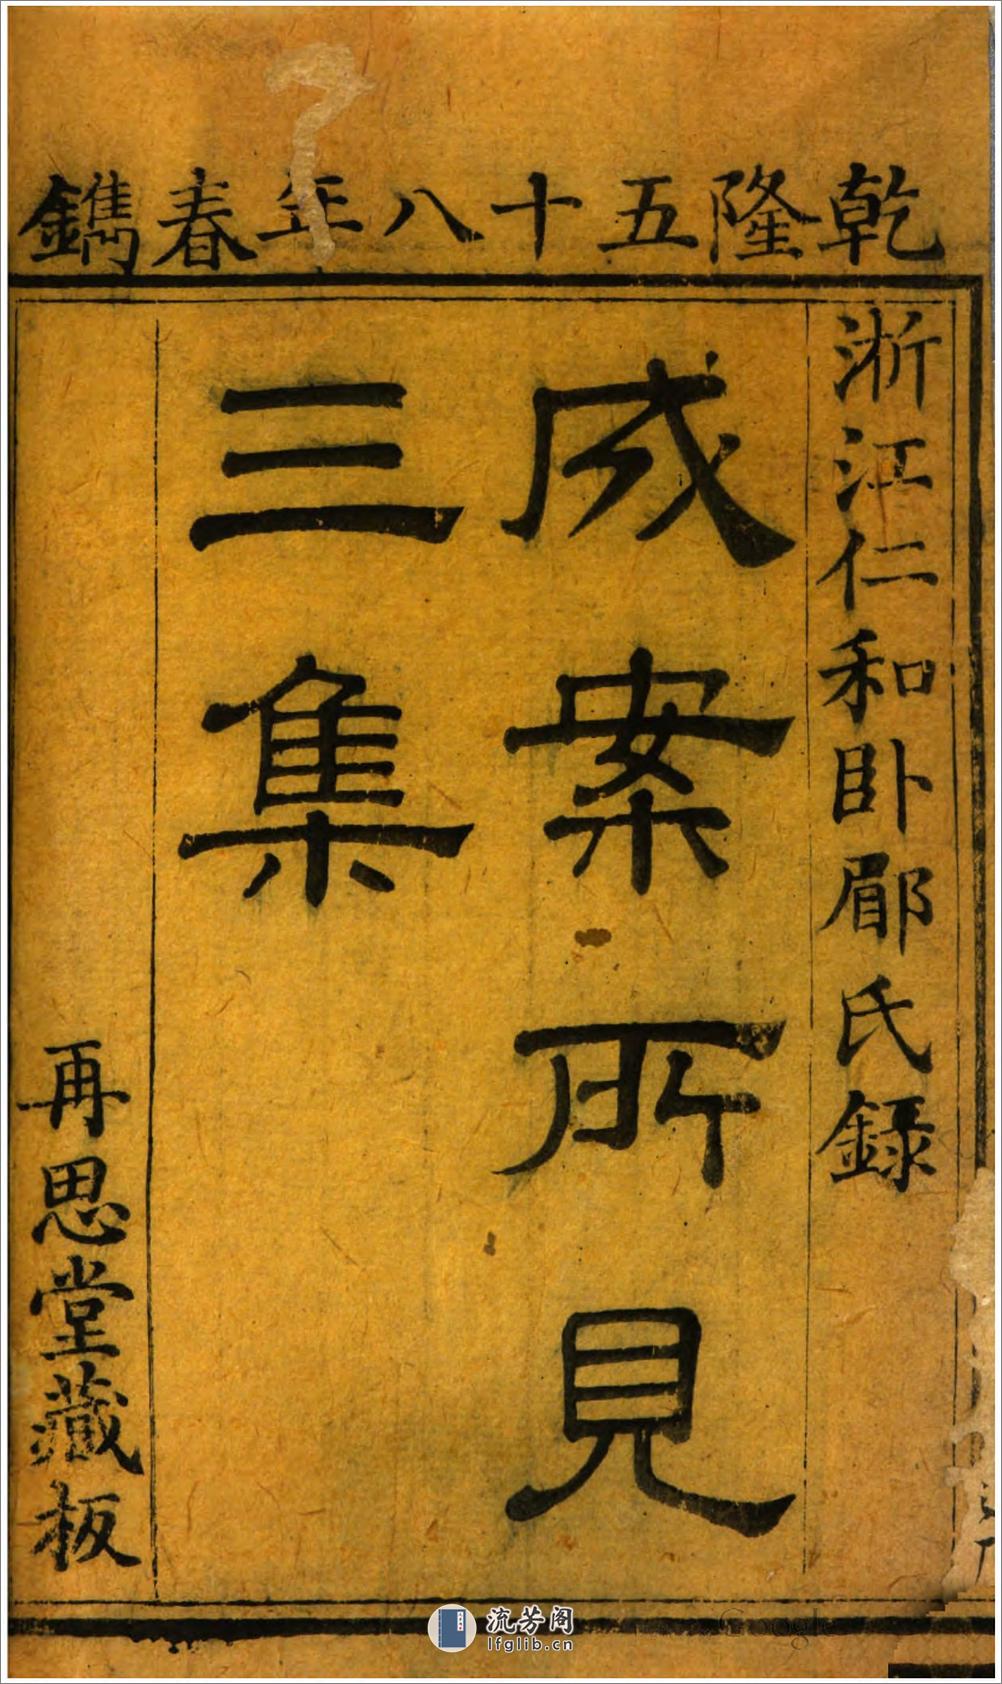 乾隆五十八年春鐫
淅江仁和卧郿氏録
成案所見
三集
再思堂藏板
流芳阁
lfglib.cn
Google